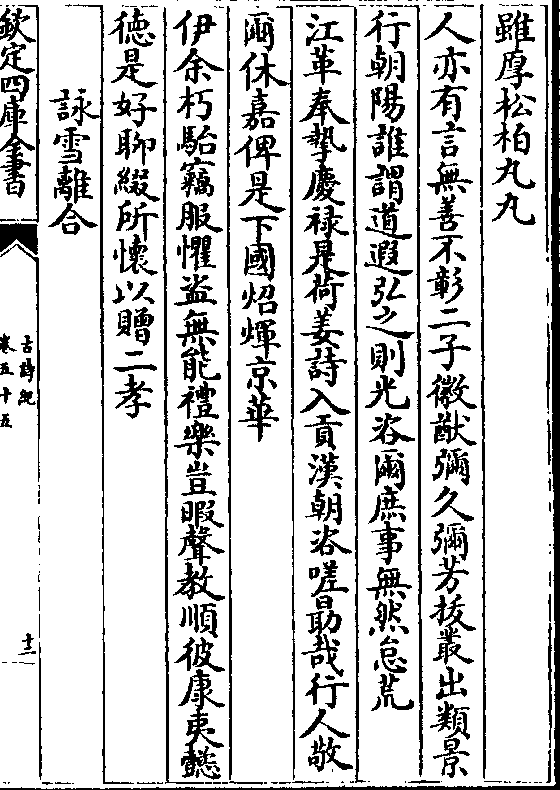 雖厚松柏丸丸
人亦有言無善不彰二子徽猷彌久彌芳拔叢出類景
行朝陽誰謂道遐弘之則光咨爾庶事無然怠荒
江革奉摯慶祿是荷姜詩入貢漢朝咨嗟勗哉行人敬
爾休嘉俾是下國炤煇京華
伊余朽駘竊服懼盜無能禮樂豈暇聲教順彼康夷懿
德是好聊綴所懷以贈二孝
詠雪離合
欽定四庫全書
古詩紀
卷五十五
十三